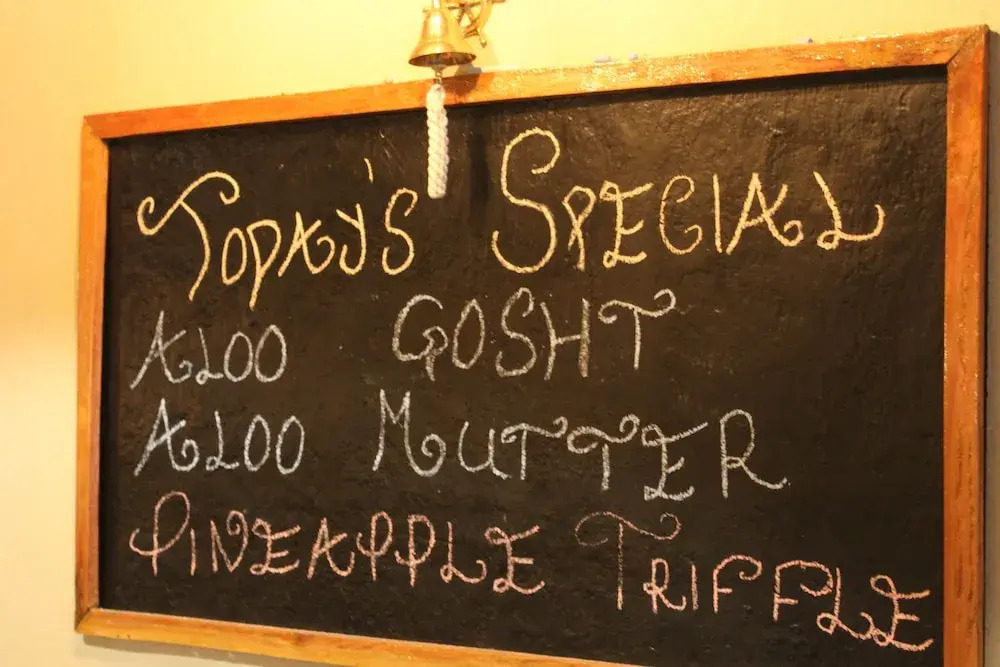 TODAY'S SPECIAL
ALOO GOSHT
ALOO MUTTER
PINEAPPLE TRIFFLE